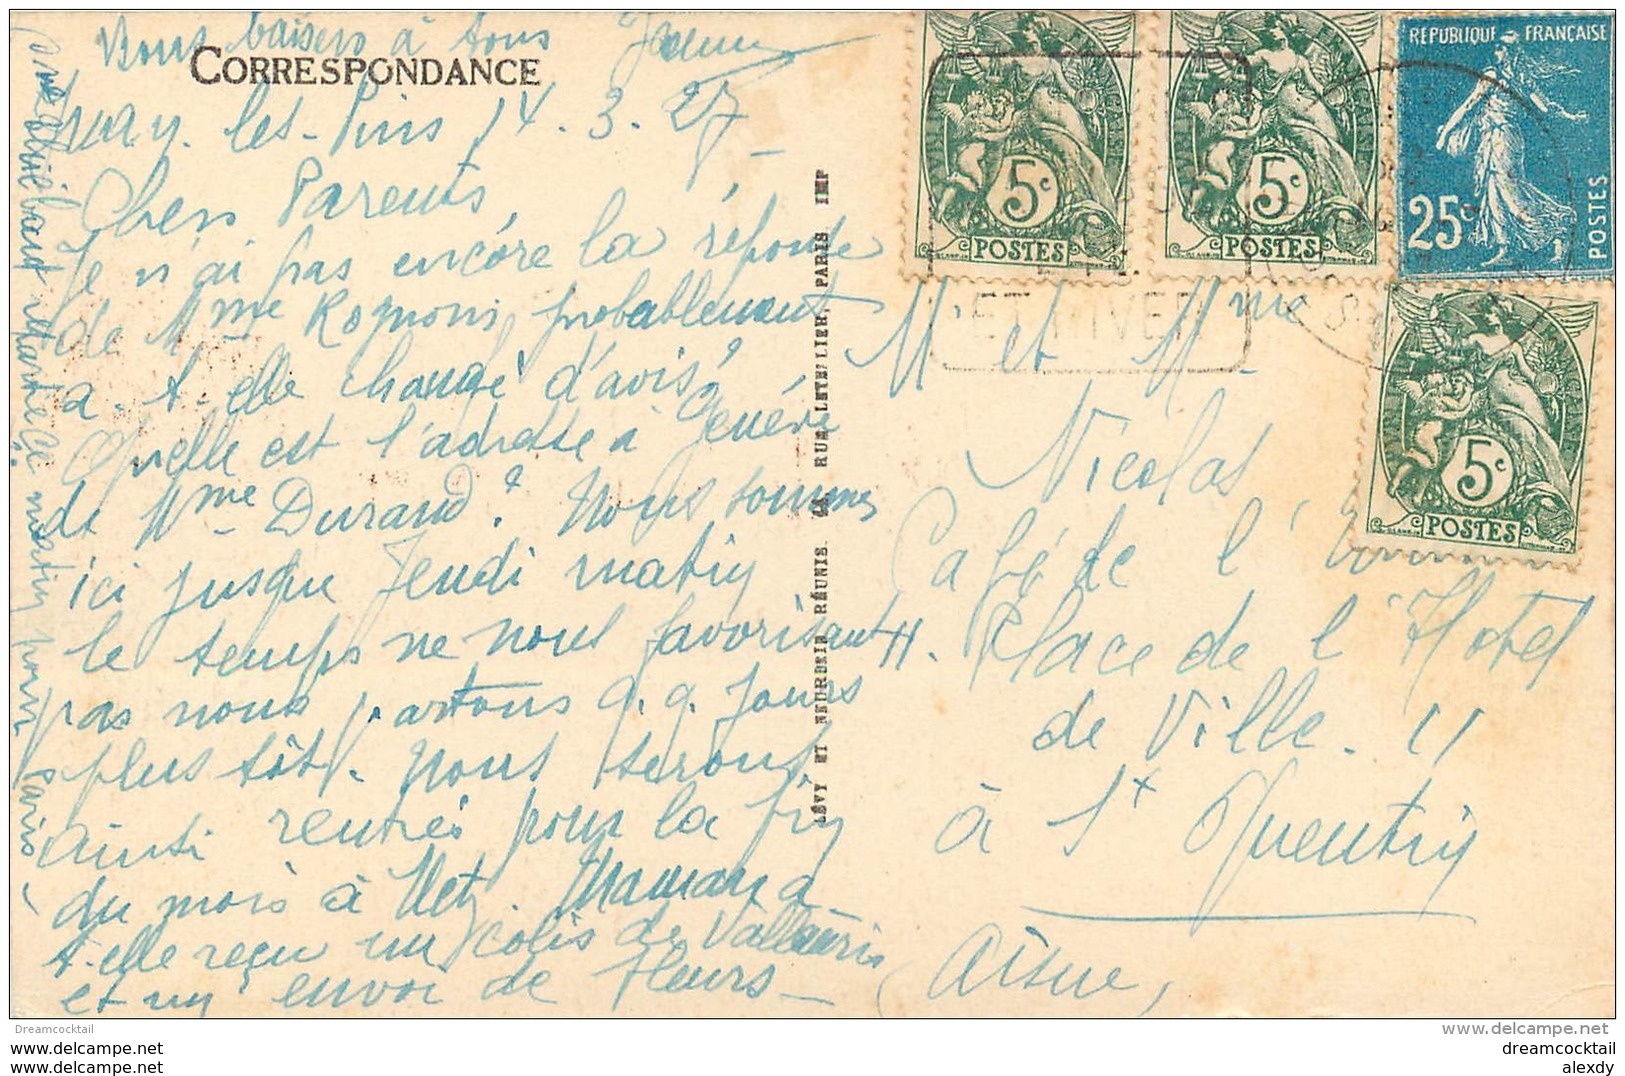 Bons baisers à tous
CORRESPONDANCE
Juan. les-Pins 14. 3. 27
Chers Parents,
Je n'ai pas encore la réponse
de Mme Romons, probablement
a. t. elle changé d'avis?
Quelle est l'adresse à Genève
de Mme Durand? Nous sommes
ici jusque Jeudi matin
le temps ne nous favorisant
pas nous partons q.q. jours
plus tôt. Nous serons
ainsi rentrés pour la fin
du mois à Metz. Maman a
t-elle reçu un colis de Vallauris
et un envoi de fleurs_
ce matin pour Paris_
LÉVY ET NEURDEIN RÉUNIS. 44 RUE LETELLIER, PARIS IMP
5c
POSTES
5c
POSTES
RÉPUBLIQUE FRANÇAISE
25c
POSTES
5c
POSTES
ET HIVER
M. et Mme
Nicolas
Café de l'
H. Place de l'Hotel
de Ville. 11
à St Quentin
(Aisne)
Dreamcocktail
www.delcampe.com
www.delcampe.com
www.delcampe.net
dreamcocktail
alexdy